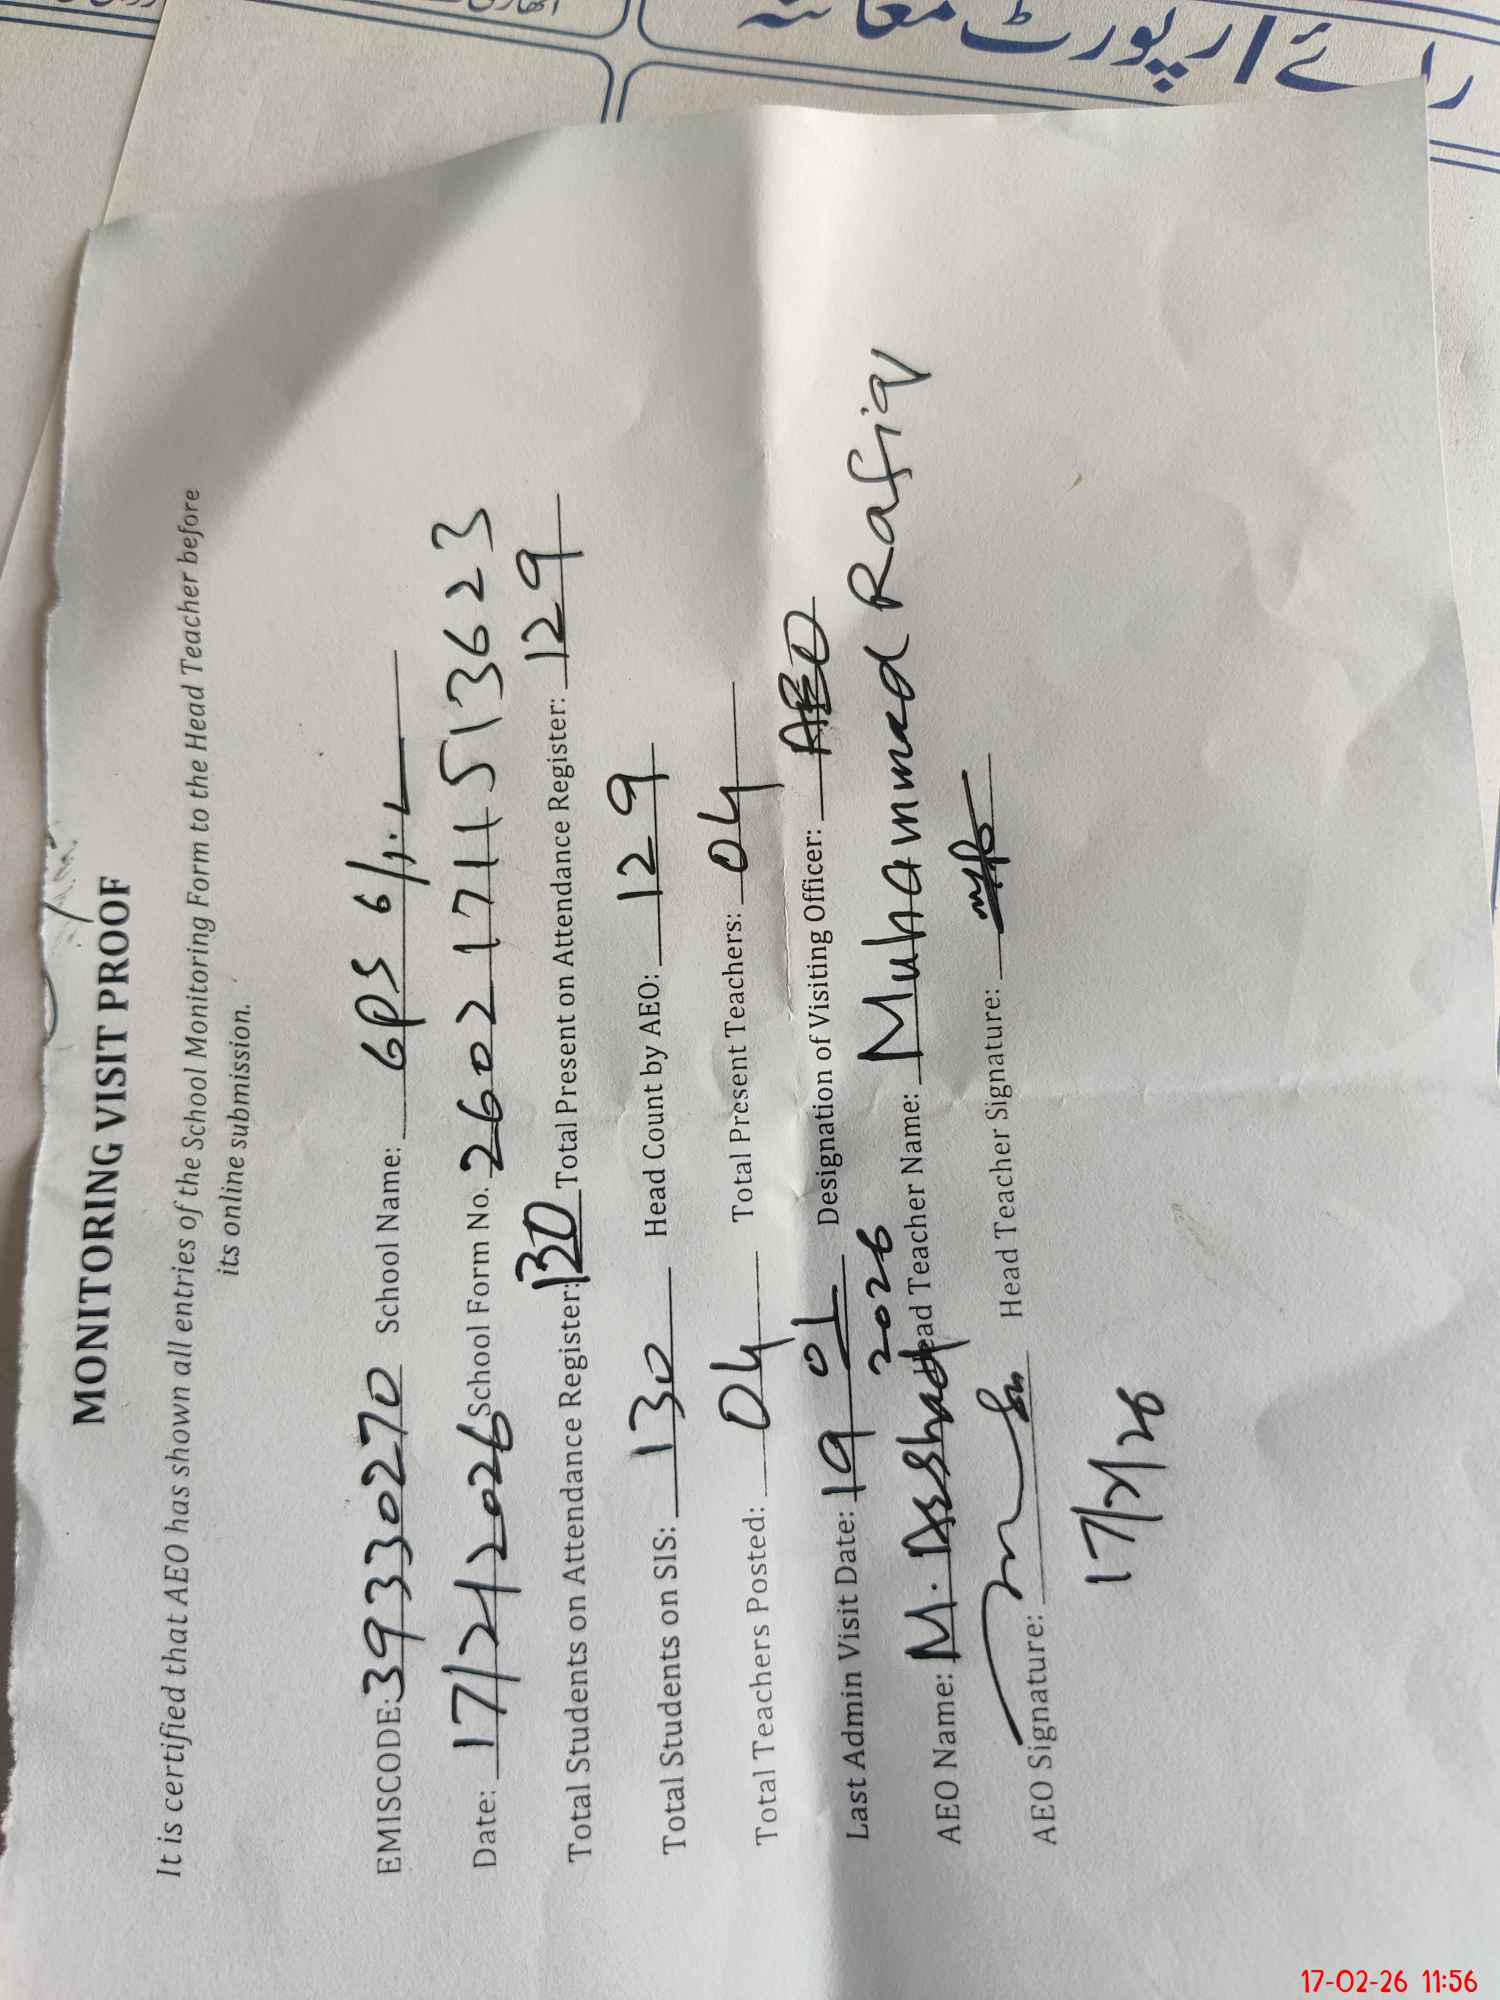 رائے / رپورٹ معائنہ
MONITORING VISIT PROOF
It is certified that AEO has shown all entries of the School Monitoring Form to the Head Teacher before
its online submission.
EMISCODE: 39330270 School Name: GPS 6/1.L
Date: 17/2/2026 School Form No. 2602171151 3623
Total Students on Attendance Register: 130 Total Present on Attendance Register: 129
Total Students on SIS: 130 Head Count by AEO: 129
Total Teachers Posted: 04 Total Present Teachers: 04
Last Admin Visit Date: 19 01 2026 Designation of Visiting Officer: AEO
AEO Name: M. Arshad Head Teacher Name: Muhammad Rafiq
AEO Signature: Head Teacher Signature:
17/2/26
17-02-26 11:56